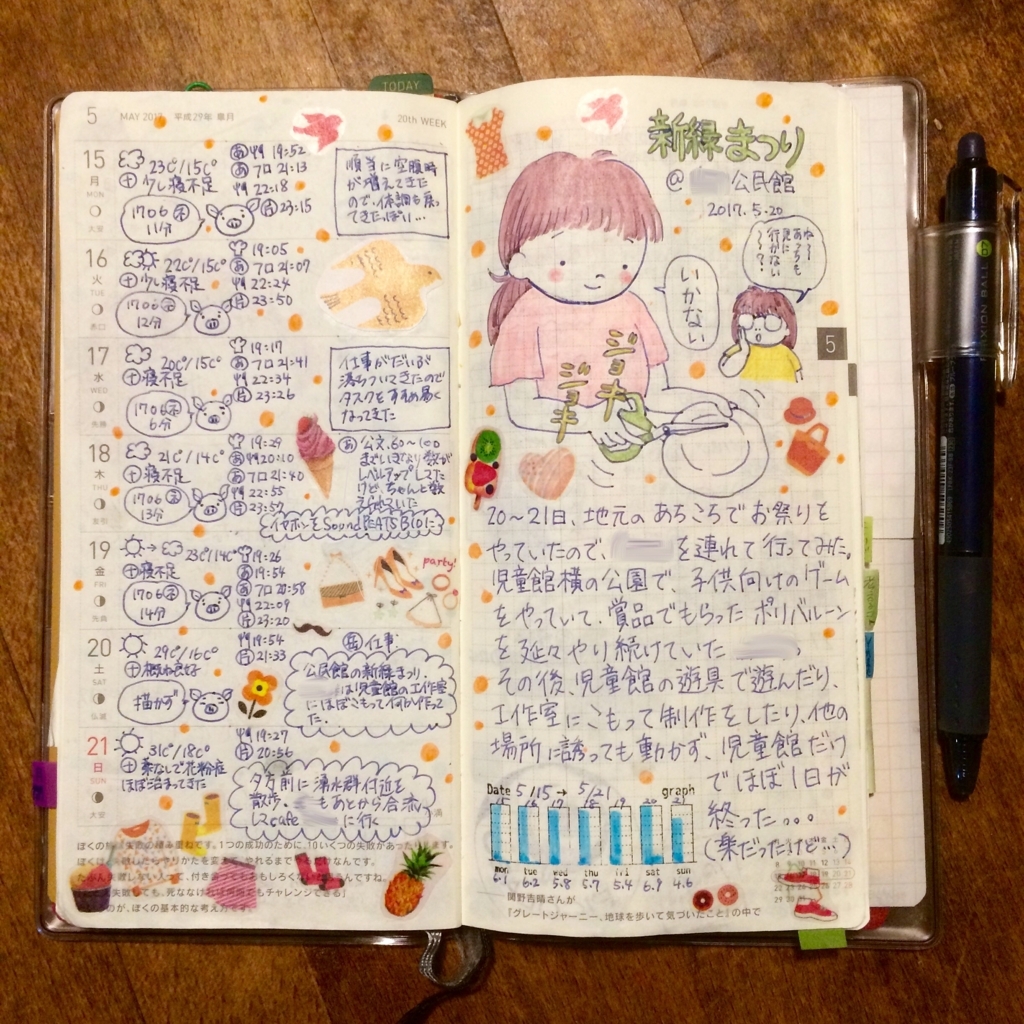 TODAY
5 MAY 2017 平成29年 皐月
20th WEEK
15
月
MON
大安
23℃/15℃
少し寝不足
1706
11分
19:52
フロ 21:13
22:18
23:15
順当に空腹時
が増えてきた
ので、体調も戻っ
てきたっぽい…
16
火
TUE
赤口
22℃/15℃
少し寝不足
1706
12分
19:05
フロ 21:07
22:24
23:50
17
水
WED
先勝
20℃/15℃
寝不足
1706
6分
19:17
フロ 21:41
22:34
23:26
仕事がだいぶ
落ちついてきたので
タスクをすすめ易く
なってきた
18
木
THU
友引
21℃/14℃
寝不足
1706
13分
19:29
20:10
フロ 21:40
22:55
23:52
公文、60～100
までいきより数が
レベルアップしてた
けど、ちゃんと数
えられていた
イヤホンをSoundPEATS B10に
19
金
FRI
先負
23℃/14℃
寝不足
1706
14分
19:26
19:54
フロ 20:58
22:09
23:20
party!
20
土
SAT
仏滅
29℃/16℃
概ね良好
描かず
19:54
21:33
仕事
公民館の新緑まつり。
は児童館の工作室
にほぼこもって何か作って
た。
21
日
SUN
大安
31℃/18℃
薬なしで花粉症
ほぼ治まってきた
19:27
20:56
夕方前に湧水群付近を
散歩。 もあとから合流
してcafe に行く
ぼくの 失敗の積み重ねです。1つの成功のために、10いくつの失敗があったりします。
ぼくは 失敗したらやりかたを変えて、やれるまで なんです。
失敗しない人って、付き合ってもおもしろくない ですね。
失敗しても、死ななければ何度でもチャレンジできる」
のが、ぼくの基本的な考え方です。
新緑まつり
@ 公民館
2017.5.20
ね～
あっちも
見に
行かない
～？
いかない
ジョキ
ジョキ
5
20～21日、地元のあちこちでお祭りを
やっていたので、 を連れて行ってみた。
児童館横の公園で、子供向けのゲーム
をやっていて、賞品でもらったポリバルーン
を延々やり続けていた 。
その後、児童館の遊具で遊んだり、
工作室にこもって制作をしたり、他の
場所に誘っても動かず、児童館だけ
でほぼ1日が
終った。。。
(楽だったけど…)
Date 5/15 → 5/21 graph
15 16 17 18 19 20 21
mon tue wed thu fri sat sun
6.1 6.2 5.8 5.7 5.4 6.9 4.6
関野吉晴さんが
『グレートジャーニー、地球を歩いて気づいたこと』の中で